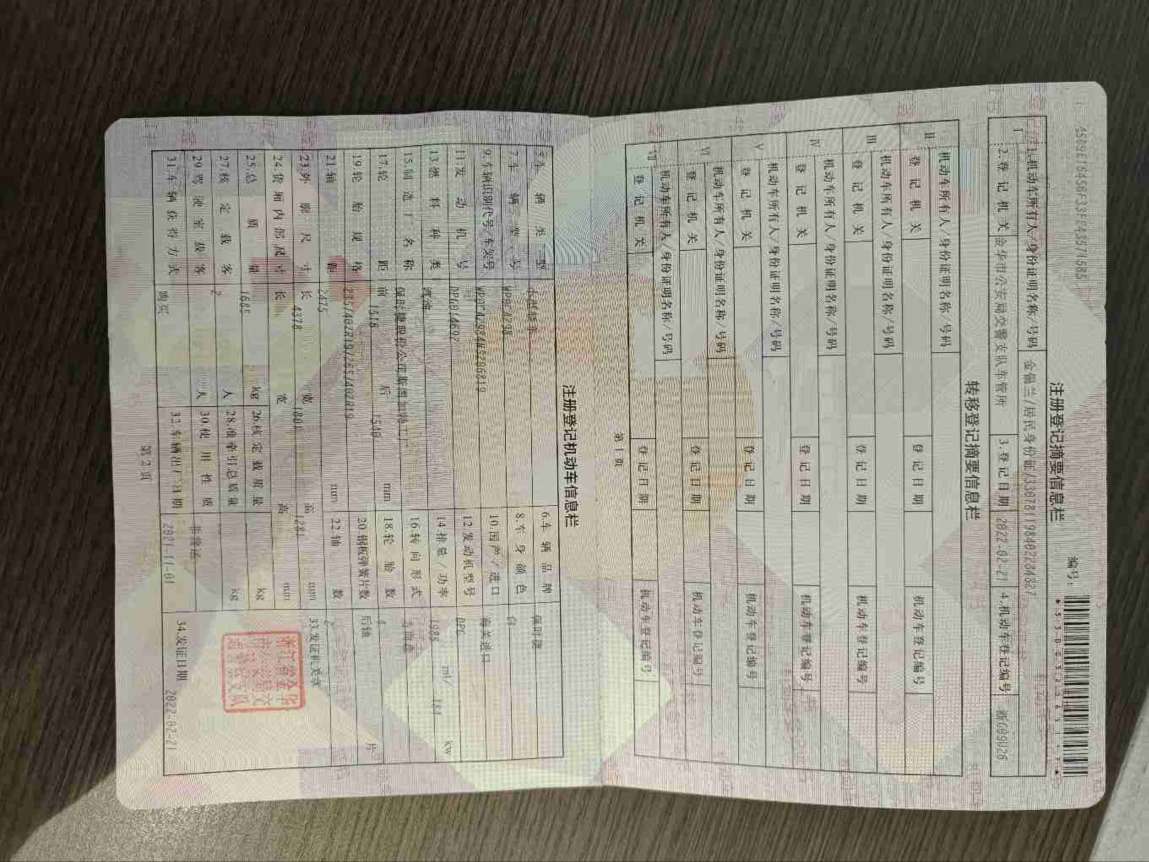 注册登记摘要信息栏
编号:
I
1.机动车所有人/身份证明名称/号码
2.登记机关 金华市公安局交警支队车管所 3.登记日期 2022-02-21 4.机动车登记编号
转移登记摘要信息栏
II 机动车所有人/身份证明名称/号码
登记机关 登记日期 机动车登记编号
III 机动车所有人/身份证明名称/号码
登记机关 登记日期 机动车登记编号
IV 机动车所有人/身份证明名称/号码
登记机关 登记日期 机动车登记编号
V 机动车所有人/身份证明名称/号码
登记机关 登记日期 机动车登记编号
VI 机动车所有人/身份证明名称/号码
登记机关 登记日期 机动车登记编号
VII 机动车所有人/身份证明名称/号码
登记机关 登记日期 机动车登记编号
第1页
注册登记机动车信息栏
5.车辆类型 6.车辆品牌 保时捷
7.车辆型号 8.车身颜色 白
9.车辆识别代号/车架号 10.国产/进口 海关进口
11.发动机号 12.发动机型号 DPG
13.燃料种类 汽油 14.排量/功率 1985 ml/ kw
15.制造厂名称 16.转向形式 方向盘
17.轮距 前 1518 后 1540 mm 18.轮胎数 4
19.轮胎规格 235/40ZR19/265/40ZR19 20.钢板弹簧片数 后轴 片
21.轴距 2475 mm 22.轴数 2
23.外廓尺寸 长 4378 宽 高 1281 mm 33.发证机关章
24.货厢内部尺寸 长 宽 高 mm
25.总质量 1685 kg 26.核定载质量 kg
27.核定载客 2 人 28.准牵引总质量 kg
29.驾驶室载客 人 30.使用性质 非营运
31.车辆获得方式 购买 32.车辆出厂日期 2021-11-01 34.发证日期 2022-02-21
第2页